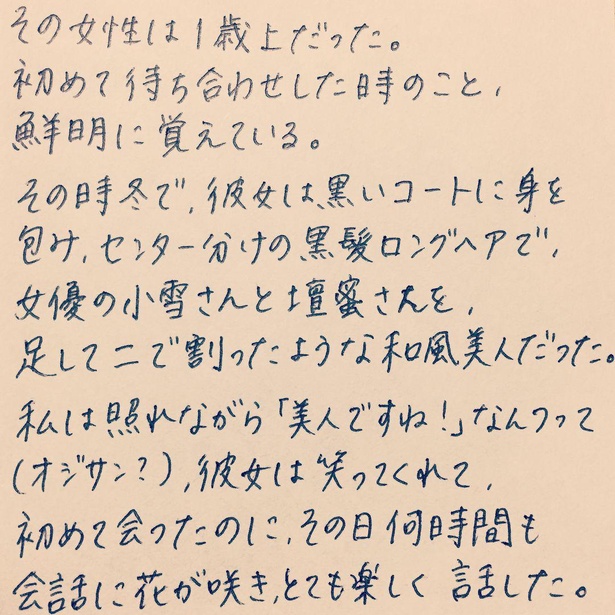 その女性は1歳上だった。
初めて待ち合わせした時のこと、
鮮明に覚えている。
その時冬で、彼女は黒いコートに身を
包み、センター分けの黒髪ロングヘアで、
女優の小雪さんと壇蜜さんを、
足して二で割ったような和風美人だった。
私は照れながら「美人ですね!」なんつって
(オジサン?)、彼女は笑ってくれて、
初めて会ったのに、その日何時間も
会話に花が咲き、とても楽しく話した。